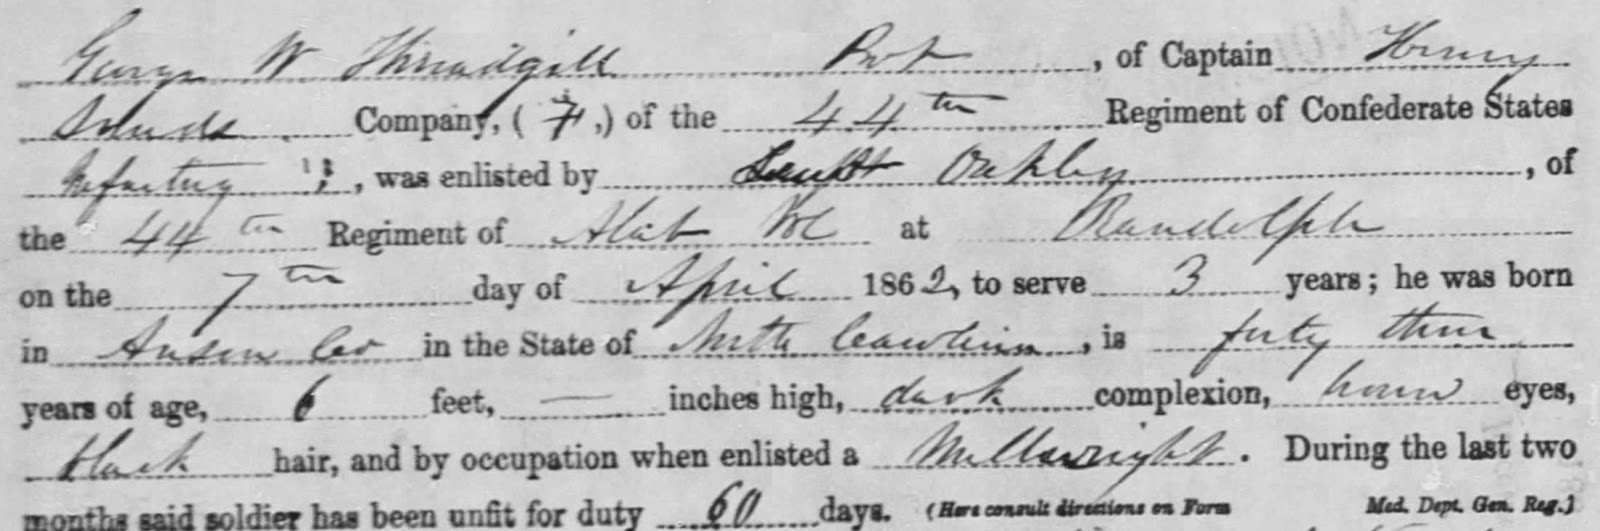 George W Threadgill Pvt, of Captain Henry
Company, ( ,) of the 44th Regiment of Confederate States
Infantry, was enlisted by Lieut Oakley, of
the 44th Regiment of Alab Vol at Randolph
on the 7th day of April 1862, to serve 3 years; he was born
in Anson Co in the State of North Carolina, is forty three
years of age, 6 feet, — inches high, dark complexion, brown eyes,
black hair, and by occupation when enlisted a Millwright. During the last two
months said soldier has been unfit for duty 60 days. (Here consult directions on Form Med. Dept. Gen. Reg.)